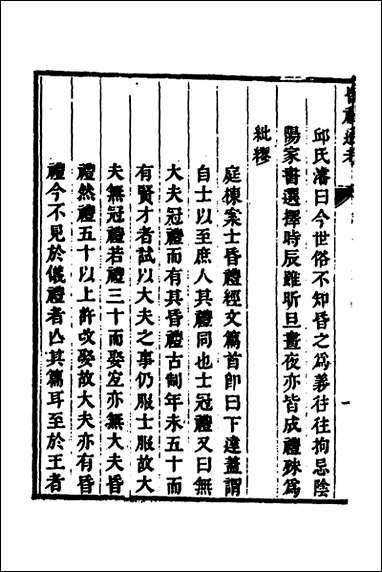 昏禮通考
邱氏濬曰今世俗不知昏之為義往往拘忌陰
陽家書選擇時辰雖昕旦晝夜亦皆成禮殊為
紕繆
庭棟案士昏禮經文篇首即曰下達蓋謂
自士以至庶人其禮同也士冠禮又曰無
大夫冠禮而有其昏禮古者年未五十而
有賢才者試以大夫之事仍服士服故大
夫無冠禮若禮三十而娶宜亦無大夫昏
禮然禮五十以上許改娶故大夫亦有昏
禮今不見於儀禮者亾其篇耳至於王者